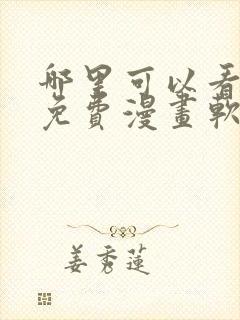 哪里可以看
免費漫畫軟
姜秀蓮